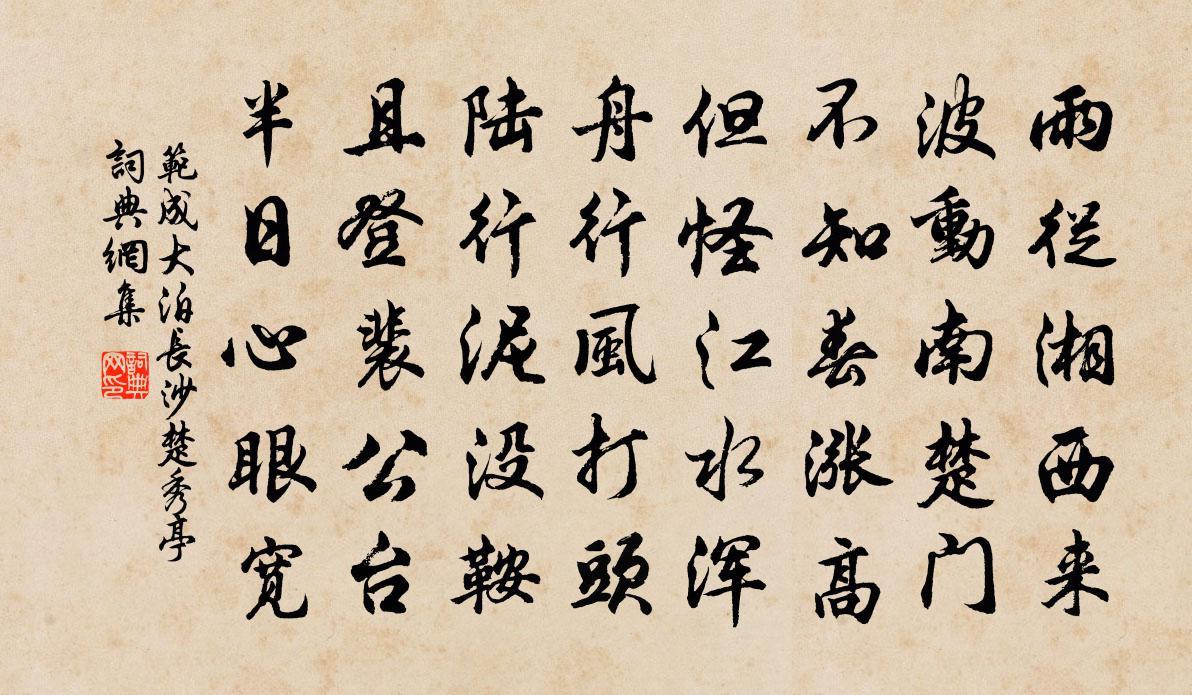 雨從湘西来
波動南楚门
不知春漲高
但怪江水浑
舟行風打頭
陆行泥没鞍
且登裴公台
半日心眼宽
範成大泊長沙楚秀亭
詞典網集
詞典网印